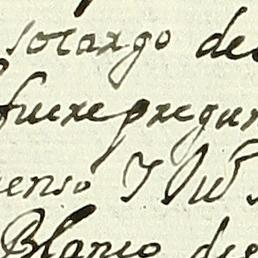 socargo de
fuere pregun
enso Y Jud
Blanco de